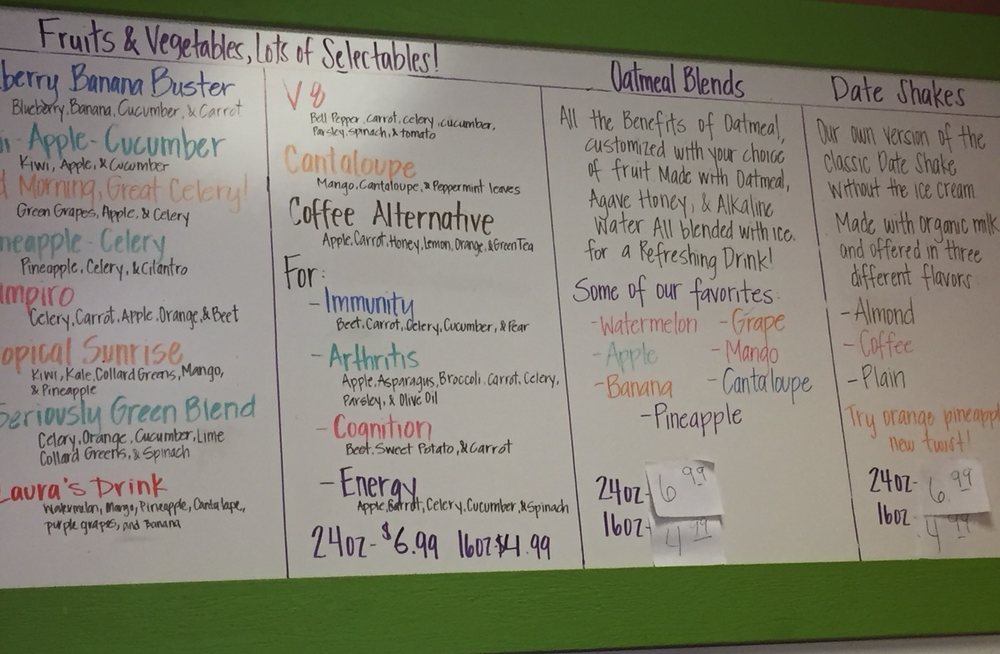 Fruits & Vegetables, Lots of Selectables!
berry Banana Buster
Blueberry, Banana, Cucumber, & Carrot
i - Apple - Cucumber
Kiwi, Apple, & Cucumber
d Morning, Great Celery!
Green Grapes, Apple, & Celery
neapple - Celery
Pineapple, Celery, & Cilantro
mpiro
Celery, Carrot, Apple, Orange, & Beet
opical Sunrise
Kiwi, Kale, Collard Greens, Mango,
& Pineapple
Seriously Green Blend
Celery, Orange, Cucumber, Lime
Collard Greens, & Spinach
Laura's Drink
Watermelon, Mango, Pineapple, Cantalape,
purple grapes, and Banana
V8
Bell Pepper, carrot, celery, cucumber,
Parsley, spinach, & tomato
Cantaloupe
Mango, Cantaloupe, & Peppermint leaves
Coffee Alternative
Apple, Carrot, Honey, lemon, Orange, & Green Tea
For:
- Immunity
Beet, Carrot, Celery, Cucumber, & Pear
- Arthritis
Apple, Asparagus, Broccoli, Carrot, Celery,
Parsley, & Olive Oil
- Cognition
Beet, Sweet Potato, & Carrot
- Energy
Apple, Carrot, Celery, Cucumber & Spinach
24oz - $6.99 16oz $4.99
Oatmeal Blends
All the Benefits of Oatmeal,
customized with your choice
of fruit Made with Oatmeal,
Agave Honey, & Alkaline
Water All blended with ice.
for a Refreshing Drink!
Some of our favorites:
- Watermelon - Grape
- Apple - Mango
- Banana - Cantaloupe
- Pineapple
24oz - 6.99
16oz - 4.99
Date Shakes
Our own version of the
classic Date Shake
without the ice cream
Made with organic milk
and offered in three
different flavors:
- Almond
- Coffee
- Plain
Try orange pineappl
new twist!
24oz - 6.99
16oz - 4.99